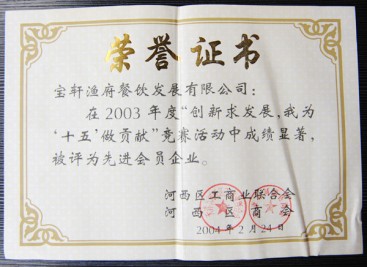 荣誉证书
宝轩渔府餐饮发展有限公司：
在2003年度“创新求发展，我为
‘十五’做贡献”竞赛活动中成绩显著，
被评为先进会员企业。
河西区工商业联合会
河西区商会
2004年2月24日